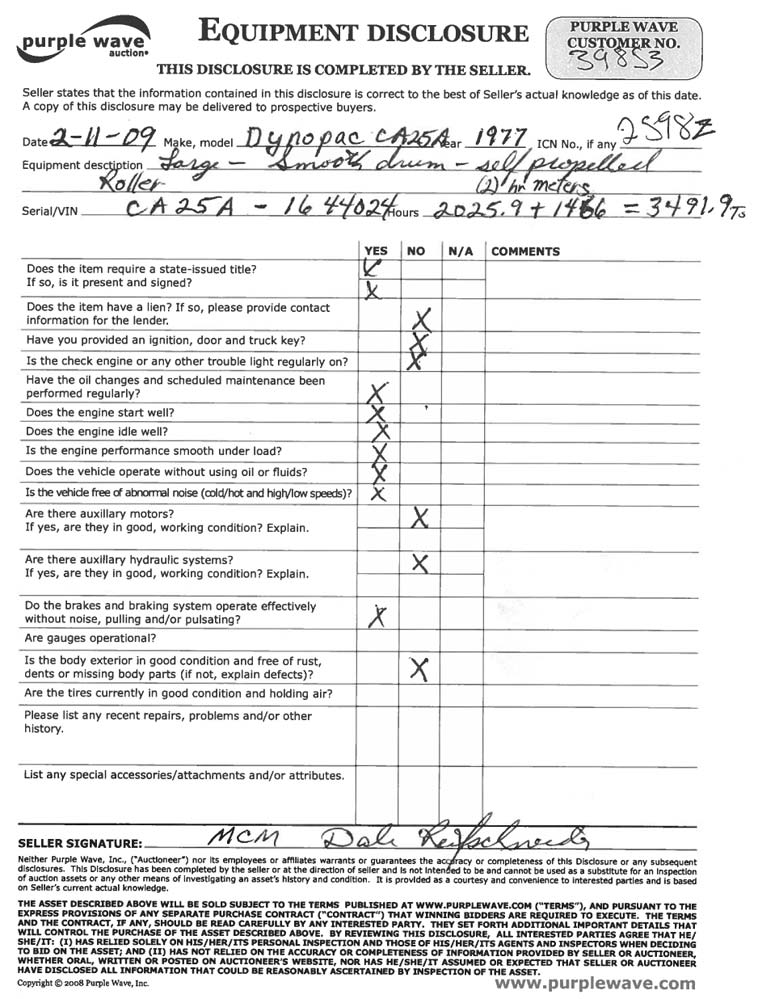 purple wave
auction
EQUIPMENT DISCLOSURE
PURPLE WAVE
CUSTOMER NO.
39853
THIS DISCLOSURE IS COMPLETED BY THE SELLER.
Seller states that the information contained in this disclosure is correct to the best of Seller's actual knowledge as of this date.
A copy of this disclosure may be delivered to prospective buyers.
Date 2-11-09 Make, model Dynopac CA25A Year 1977 ICN No., if any 2598Z
Equipment desctiption Large - Smooth drum - self propelled
Roller (2) hr meters
Serial/VIN CA25A - 1644024 Hours 2025.9 + 1466 = 3491.9 Ts
YES NO N/A COMMENTS
Does the item require a state-issued title?
If so, is it present and signed? X
Does the item have a lien? If so, please provide contact
information for the lender. X
Have you provided an ignition, door and truck key? X
Is the check engine or any other trouble light regularly on? X
Have the oil changes and scheduled maintenance been
performed regularly? X
Does the engine start well? X
Does the engine idle well? X
Is the engine performance smooth under load? X
Does the vehicle operate without using oil or fluids? X
Is the vehicle free of abnormal noise (cold/hot and high/low speeds)? X
Are there auxillary motors? X
If yes, are they in good, working condition? Explain.
Are there auxillary hydraulic systems? X
If yes, are they in good, working condition? Explain.
Do the brakes and braking system operate effectively
without noise, pulling and/or pulsating? X
Are gauges operational?
Is the body exterior in good condition and free of rust,
dents or missing body parts (if not, explain defects)? X
Are the tires currently in good condition and holding air?
Please list any recent repairs, problems and/or other
history.
List any special accessories/attachments and/or attributes.
SELLER SIGNATURE: MCM Dale Reifschneider
Neither Purple Wave, Inc., ("Auctioneer") nor its employees or affiliates warrants or guarantees the accuracy or completeness of this Disclosure or any subsequent
disclosures. This Disclosure has been completed by the seller or at the direction of seller and is not intended to be and cannot be used as a substitute for an inspection
of auction assets or any other means of investigating an asset's history and condition. It is provided as a courtesy and convenience to interested parties and is based
on Seller's current actual knowledge.
THE ASSET DESCRIBED ABOVE WILL BE SOLD SUBJECT TO THE TERMS PUBLISHED AT WWW.PURPLEWAVE.COM ("TERMS"), AND PURSUANT TO THE
EXPRESS PROVISIONS OF ANY SEPARATE PURCHASE CONTRACT ("CONTRACT") THAT WINNING BIDDERS ARE REQUIRED TO EXECUTE. THE TERMS
AND THE CONTRACT, IF ANY, SHOULD BE READ CAREFULLY BY ANY INTERESTED PARTY. THEY SET FORTH ADDITIONAL IMPORTANT DETAILS THAT
WILL CONTROL THE PURCHASE OF THE ASSET DESCRIBED ABOVE. BY REVIEWING THIS DISCLOSURE, ALL INTERESTED PARTIES AGREE THAT HE/
SHE/IT: (I) HAS RELIED SOLELY ON HIS/HER/ITS PERSONAL INSPECTION AND THOSE OF HIS/HER/ITS AGENTS AND INSPECTORS WHEN DECIDING
TO BID ON THE ASSET; AND (II) HAS NOT RELIED ON THE ACCURACY OR COMPLETENESS OF INFORMATION PROVIDED BY SELLER OR AUCTIONEER,
WHETHER ORAL, WRITTEN OR POSTED ON AUCTIONEER'S WEBSITE, NOR HAS HE/SHE/IT ASSUMED OR EXPECTED THAT SELLER OR AUCTIONEER
HAVE DISCLOSED ALL INFORMATION THAT COULD BE REASONABLY ASCERTAINED BY INSPECTION OF THE ASSET.
Copyright © 2008 Purple Wave, Inc.
www.purplewave.com